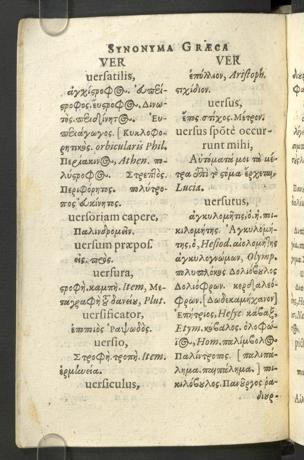 SYNONYMA GRÆCA
VER
uersatilis,
ἀγχίστροφος.
στροφος. εὔστροφος. Δινω-
τός.
[Κυκλοφο-
ρητικὸς. orbicularis Phil.
Περιακινος, Athen. πο-
λύστροφος. Στρεπτὸς
Περιφόρητος. πολύτρο-
πος εὐκίνητος.
uersoriam capere,
Παλινδρομεῖν.
uersum præpos.
εἰς. πρὸς.
uersura,
στροφή. καμπή. Item, Με-
Plut.
uersificator,
ἐποποιὸς ῥαψωδός.
uersio,
Στροφή. τροπή. Item.
ἑρμηνεία.
uersiculus,
VER
ἐπύλλιον, Aristoph.
στιχίδιον.
uersus,
ἔπος. στίχος. Μέτρον.
uersus spōtè occur-
runt mihi,
Αὐτόματά μοι τὰ μέ-
τρα ἐπὶ τὸ στόμα ἔρχεται,
Lucia.
uersutus,
ἀγκυλομήτις, ὁ, ἡ. ποι-
κιλομήτης. Ἀγκυλομή-
της, ὁ, Hesiod. αἰολομήτης
ἀγκυλογνώμων, Olymp.
πολυπλόκος Δολιόβουλος
Δολιόφρων.
φρων. [Δωδεκαμήχανον]
Ἐπήτριος, Hesyc κόβαξ,
Etym, κόβαλος. ὀλοφώ-
ϊος, Hom. παλίμβολος.
Παλίντροπος. [παιπά-
λημα. παμπάλημα.] ποι-
κιλόβουλος. Πανοῦργος ῥα-
διουρ-